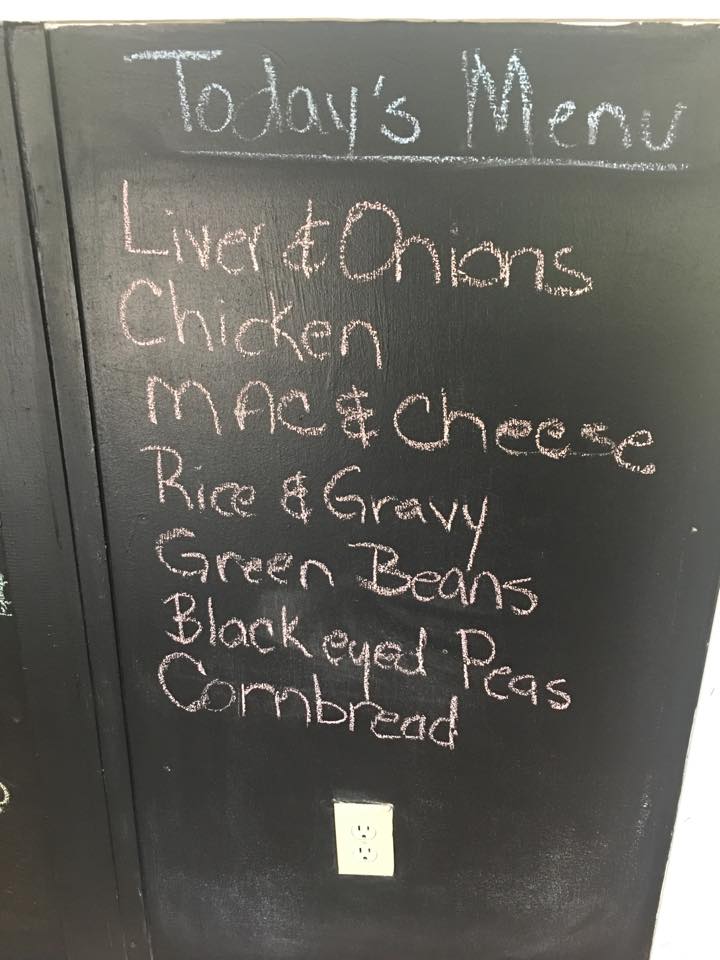 Today's Menu
Liver & Onions
Chicken
MAC & Cheese
Rice & Gravy
Green Beans
Black eyed Peas
Cornbread